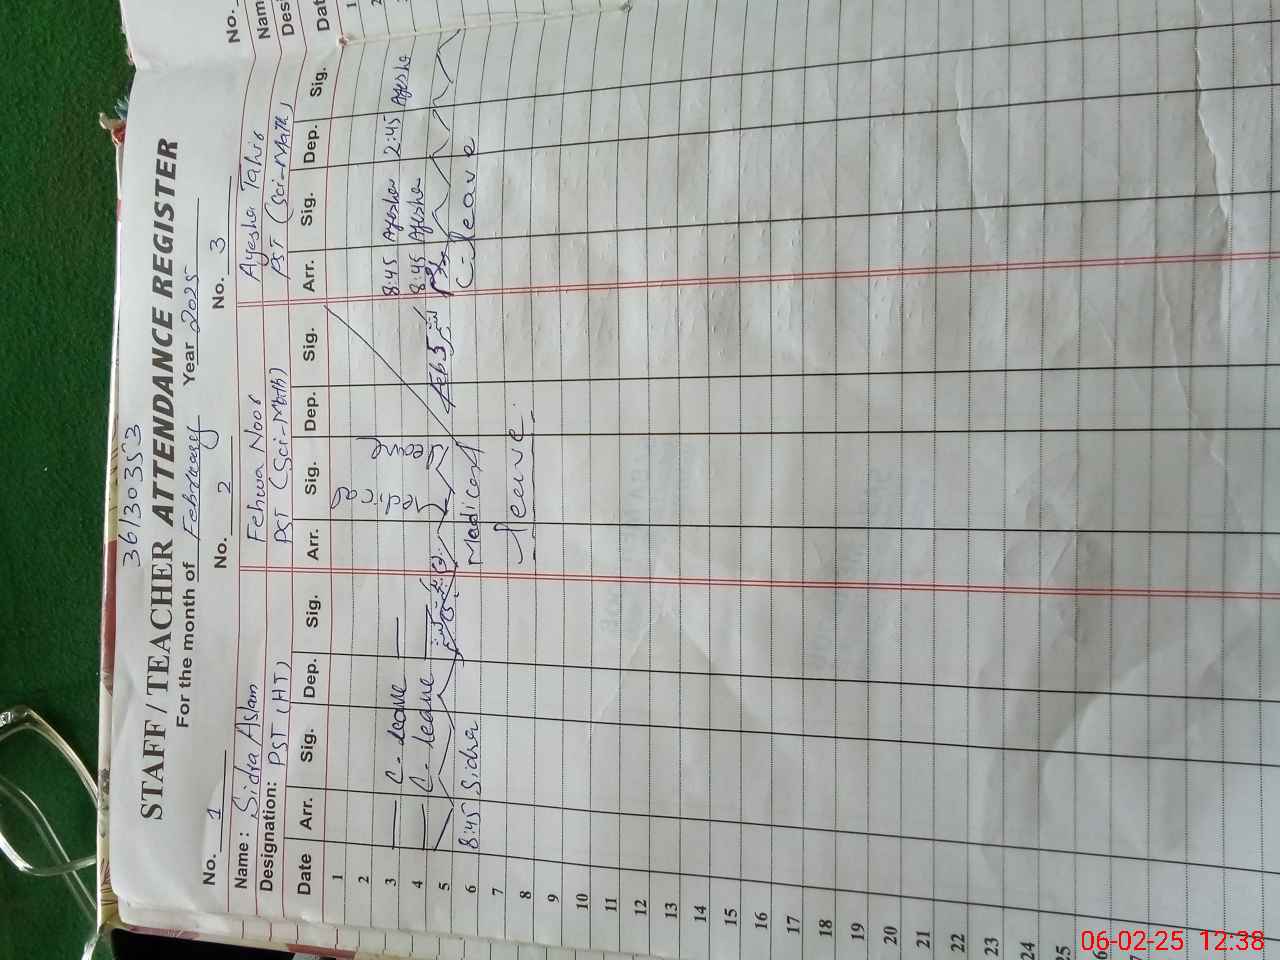 36130353
STAFF / TEACHER ATTENDANCE REGISTER
For the month of February Year 2025
No. 1 No. 2 No. 3
Name: Sidra Aslam Fehwa Noor Ayesha Tahir
Designation: PST (HT) PST (Sci-Math) PST (Sci-Math)
Date Arr. Sig. Dep. Sig. Arr. Sig. Dep. Sig. Arr. Sig. Dep. Sig.
1
2
3 C-leave 8:45 Ayesha 2:45 Ayesha
4 C-leave 8:45 Ayesha
5
6 8:45 Sidra Madical C-leave
7
8 leeve
9
10
11
12
13
14
15
16
17
18
19
20
21
22
23
24
25
No.
Nam
Desi
Dat
1
2
06-02-25 12:38